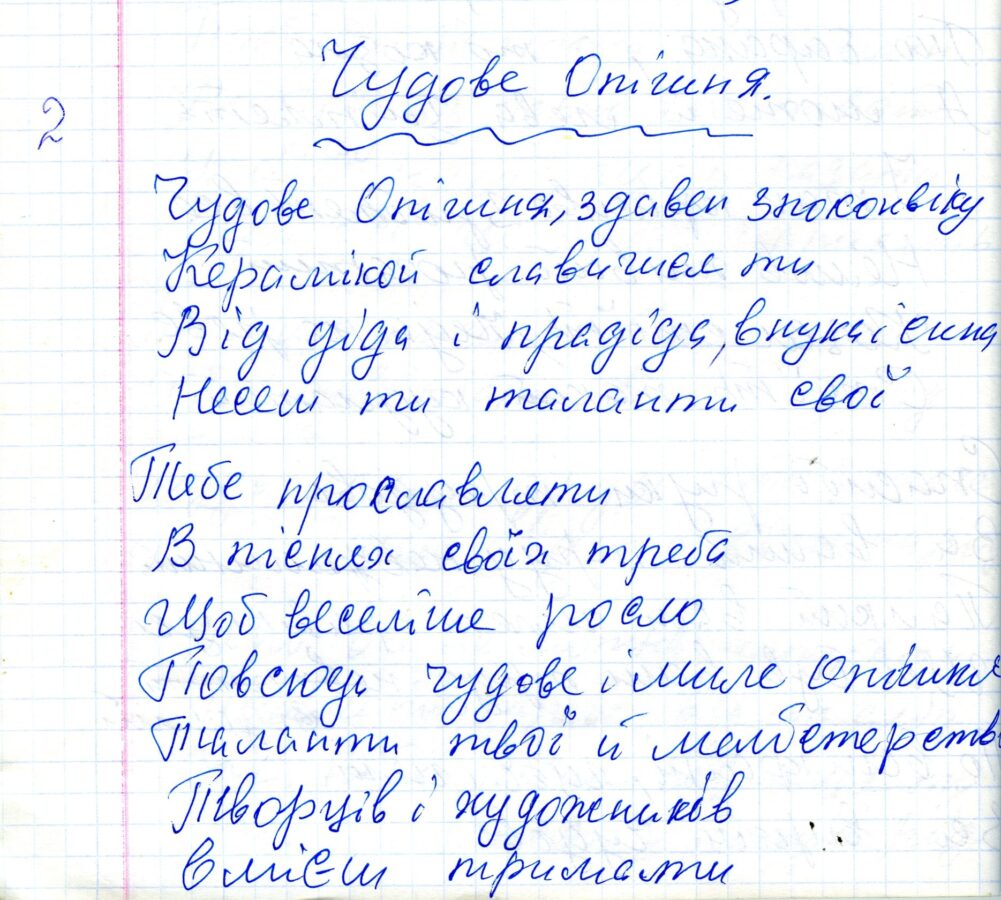 2
Чудове Опішня.
Чудове Опішня, здавен споконвіку
Керамікой славишся ти
Від діда і прадіда, внука і сина
Несеш ти таланти свої
Тебе прославляти
В піснях своїх треба
Щоб веселіше росло
Повсюди чудове і миле Опішня
Таланти твої й
Творців і художників
Вмієш тримати